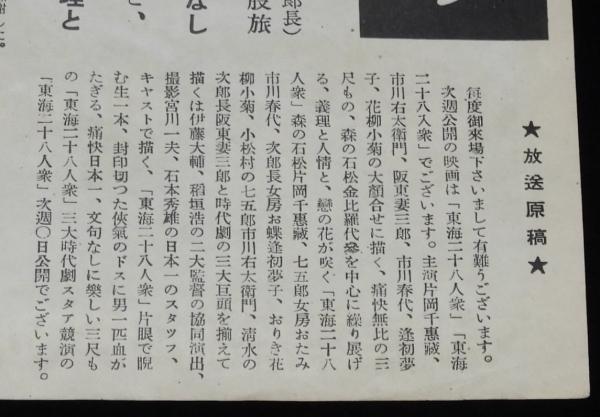 郎長）
股旅
なし
、
理と
謝した。
★放送原稿★
毎度御来場下さいまして有難うございます。
次週公開の映画は「東海二十八人衆」「東海
二十八人衆」でございます。主演片岡千惠藏、
市川右太衛門、阪東妻三郎、市川春代、逢初夢
子、花柳小菊の大顔合せに描く、痛快無比の三
尺もの、森の石松金比羅代參を中心に繰り展げ
る、義理と人情と、戀の花が咲く「東海二十八
人衆」森の石松片岡千惠藏、七五郎女房おたみ
市川春代、次郎長女房お蝶逢初夢子、おりき花
柳小菊、小松村の七五郎市川右太衛門、清水の
次郎長阪東妻三郎と時代劇の三大巨頭を揃えて
描くは伊藤大輔、稲垣浩の二大監督の協同演出、
撮影宮川一夫、石本秀雄の日本一のスタッフ、
キャストで描く、「東海二十八人衆」片眼で睨
む生一本、封印切つた俠氣のドスに男一匹血が
たぎる、痛快日本一、文句なしに樂しい三尺も
の「東海二十八人衆」三大時代劇スタア競演の
「東海二十八人衆」次週〇日公開でございます。